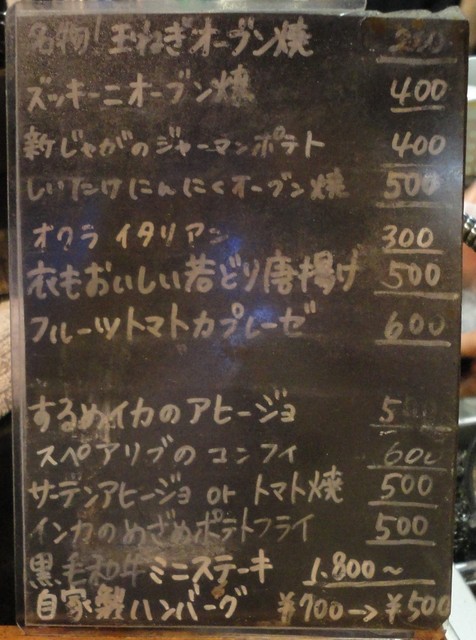 名物!玉ねぎオーブン焼
ズッキーニオーブン焼 400
新じゃがのジャーマンポテト 400
しいたけにんにくオーブン焼 500
オクラ イタリアン 300
衣もおいしい若どり唐揚げ 500
フルーツトマトカプレーゼ 600
するめイカのアヒージョ
スペアリブのコンフィ 600
サーデンアヒージョ or トマト焼 500
インカのめざめポテトフライ 500
黒毛和牛ミニステーキ 1.800~
自家製ハンバーグ ¥700→¥500